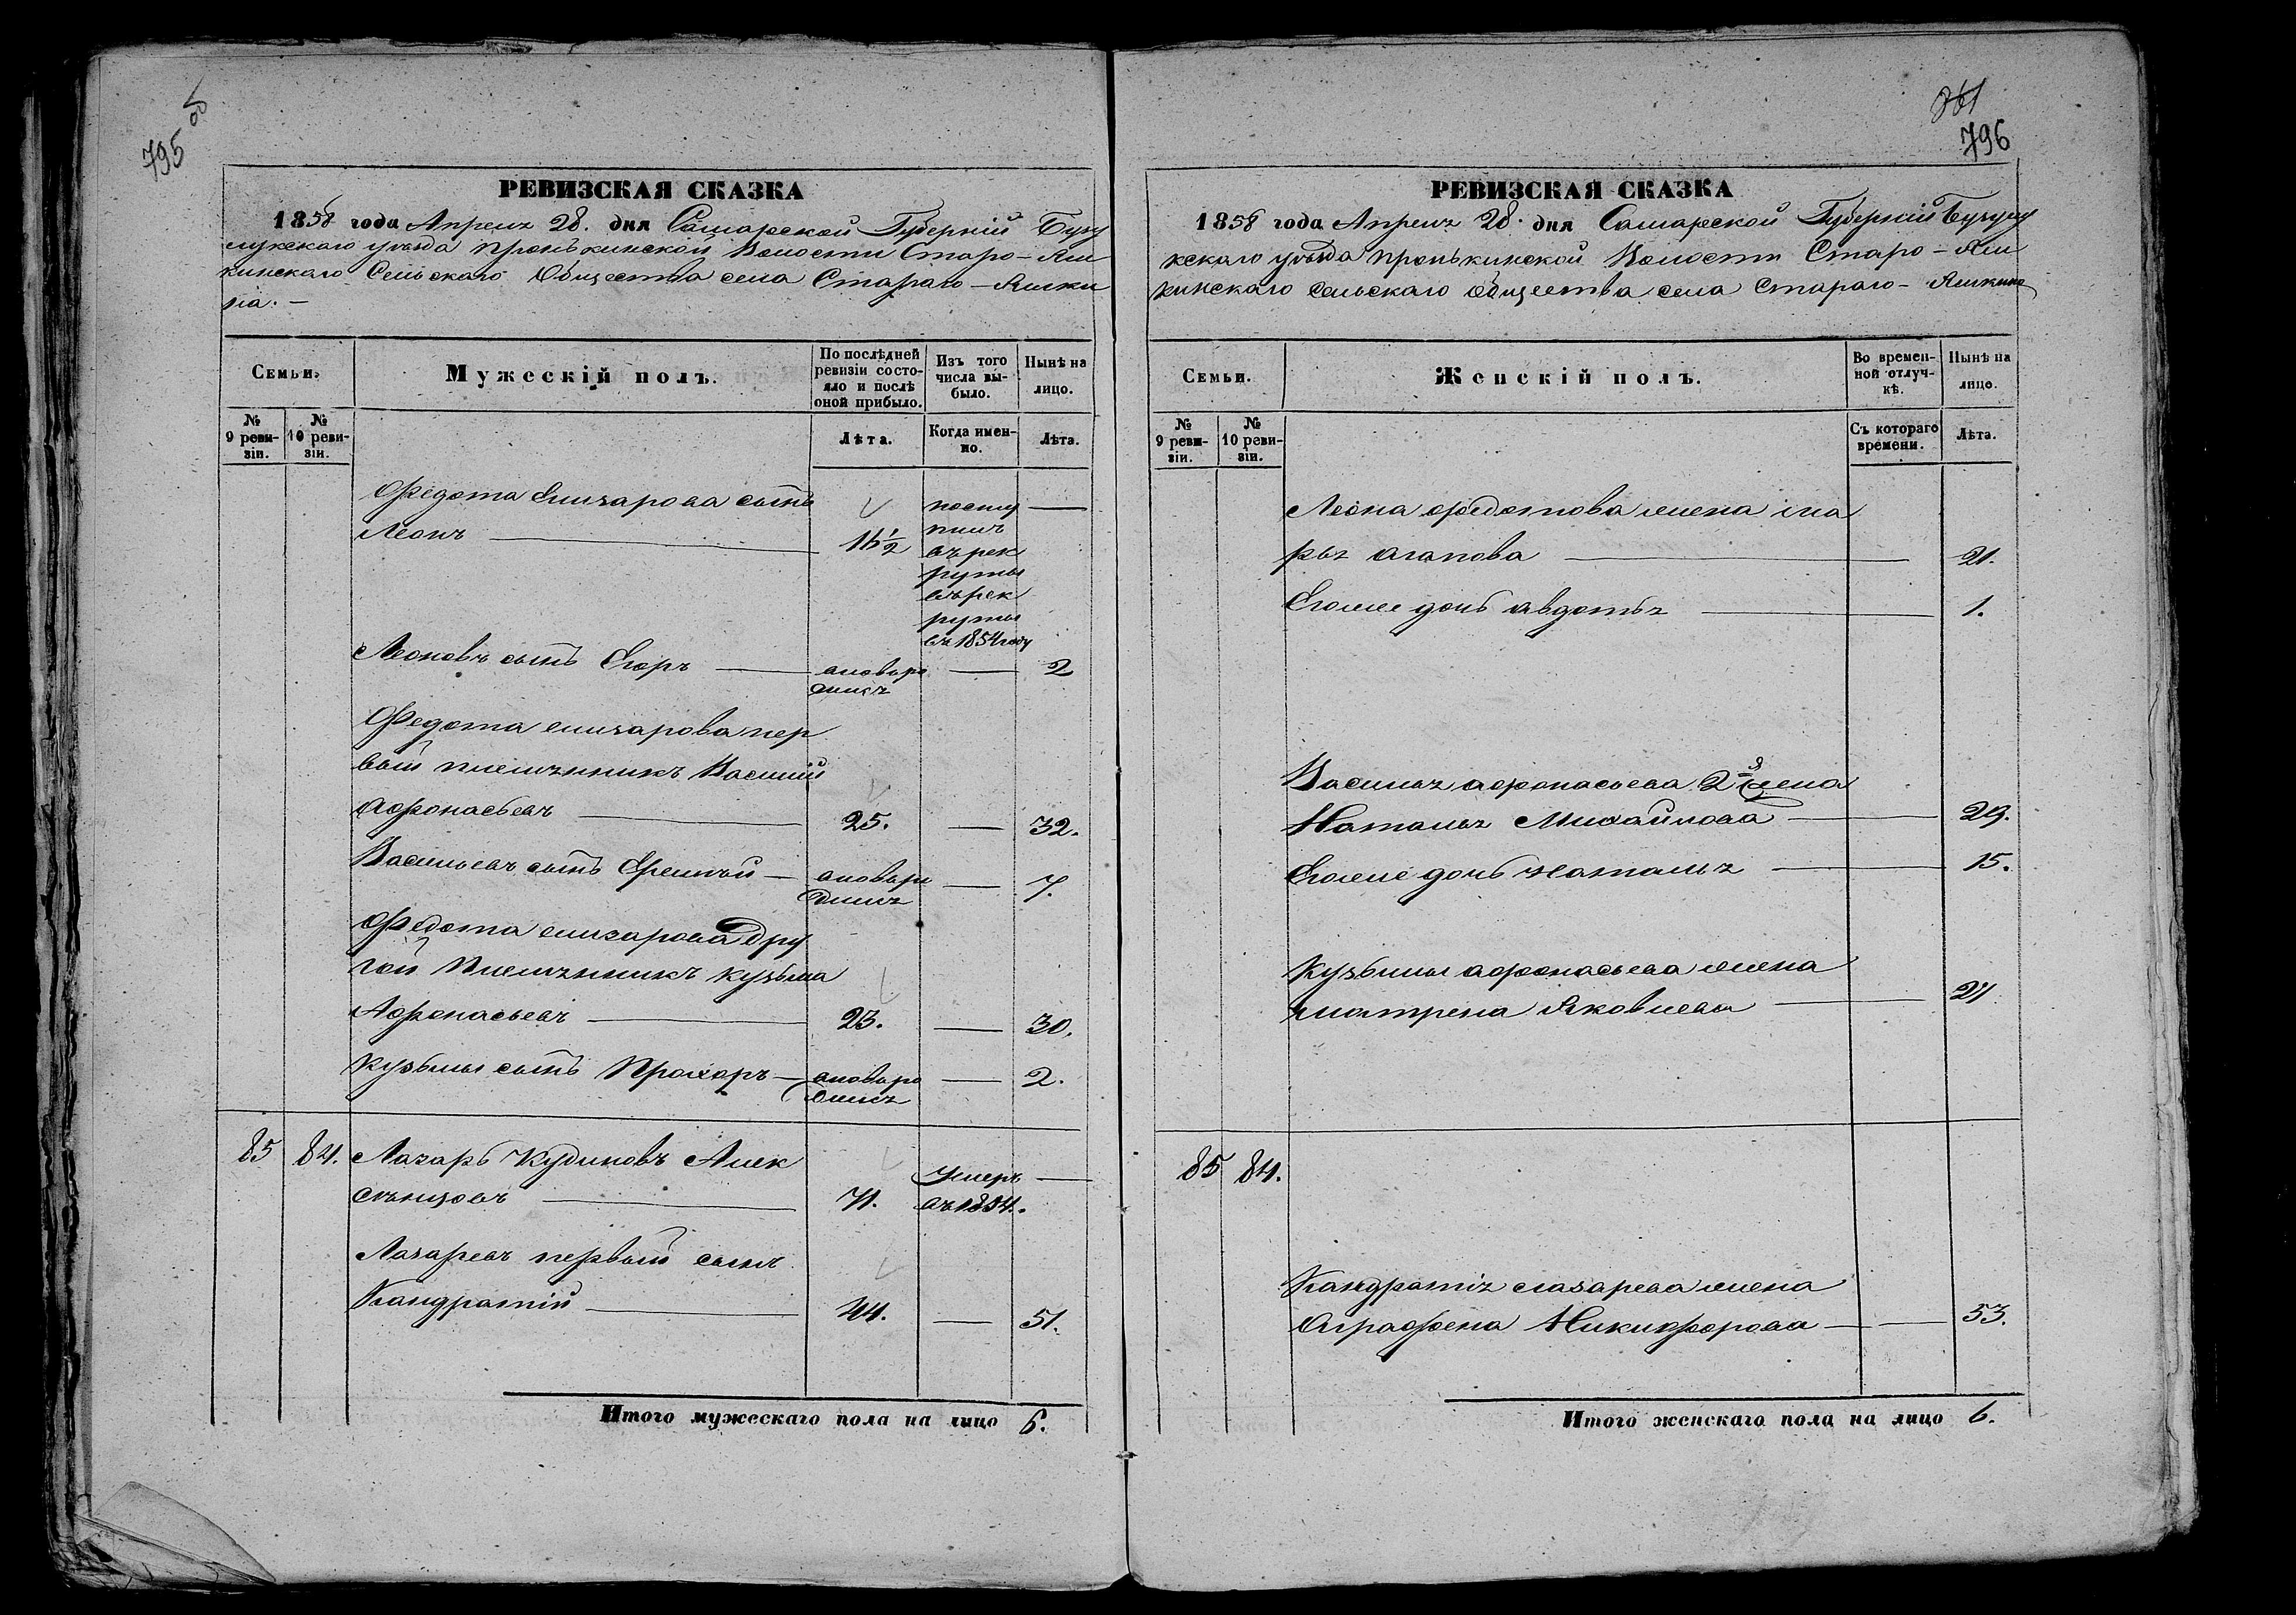 795
РЕВИЗСКАЯ СКАЗКА
1858 года Апреля 28. дня Самарской Губерній Бузу
лукскаго уѣзда Пронькинской Волости Старо-Яш
кинскаго Сельскаго Общества села Стараго-Яшки
на.
Семьи.
Мужескій полъ.
По послѣдней ревизіи состояло и послѣ оной прибыло.
Изъ того числа выбыло.
Нынѣ на лицо.
№ 9 ревизіи.
№ 10 ревизіи.
Лѣта.
Когда именно.
Лѣта.
Федота Елизарова сынъ
Леонъ — 16½
посту
пилъ
въ рек
руты
въ рек
руты
въ 1854 году
—
Леоновъ сынъ Егоръ — вновьро
дился — 2
Федота елизарова пер
вый племянникъ Василій
Афонасьевъ — 25. — 32.
Васильевъ сынъ Ефимъй — вновьро
дился — 7.
Федота елизарова дру
гой Племянникъ кузьма
Афонасьевъ — 23. — 30.
Кузьмы сынъ Прохоръ — вновьро
дился — 2.
85 84. Лазарь Кудиновъ Алек
сѣнцовъ — 71. Умеръ
въ 1854. —
Лазаревъ первый сынъ
Кандратій — 44. — 51.
Итого мужескаго пола на лицо 6.
361
796
РЕВИЗСКАЯ СКАЗКА
1858 года Апреля 28. дня Самарской Губерній Бузулу
кскаго уѣзда Пронькинской Волости Старо-Яш
кинскаго Сельскаго общества села Стараго-Яшкина
Семьи.
Женскій полъ.
Во временной отлучкѣ.
Нынѣ на лицо.
№ 9 ревизіи.
№ 10 ревизіи.
Съ котораго времени.
Лѣта.
Леона федотова жена ма
рья агапова — 21.
Егоже дочь авдотья — 1.
Василья афонасьева 2я жена
Наталья Михайлова — 29.
Егоже дочь наталья — 15.
Кузьмы афонасьева жена
матрена Яковлева — 27
85 84.
Кандратія лазарева жена
Аграфена Никифорова — 53.
Итого женскаго пола на лицо 6.